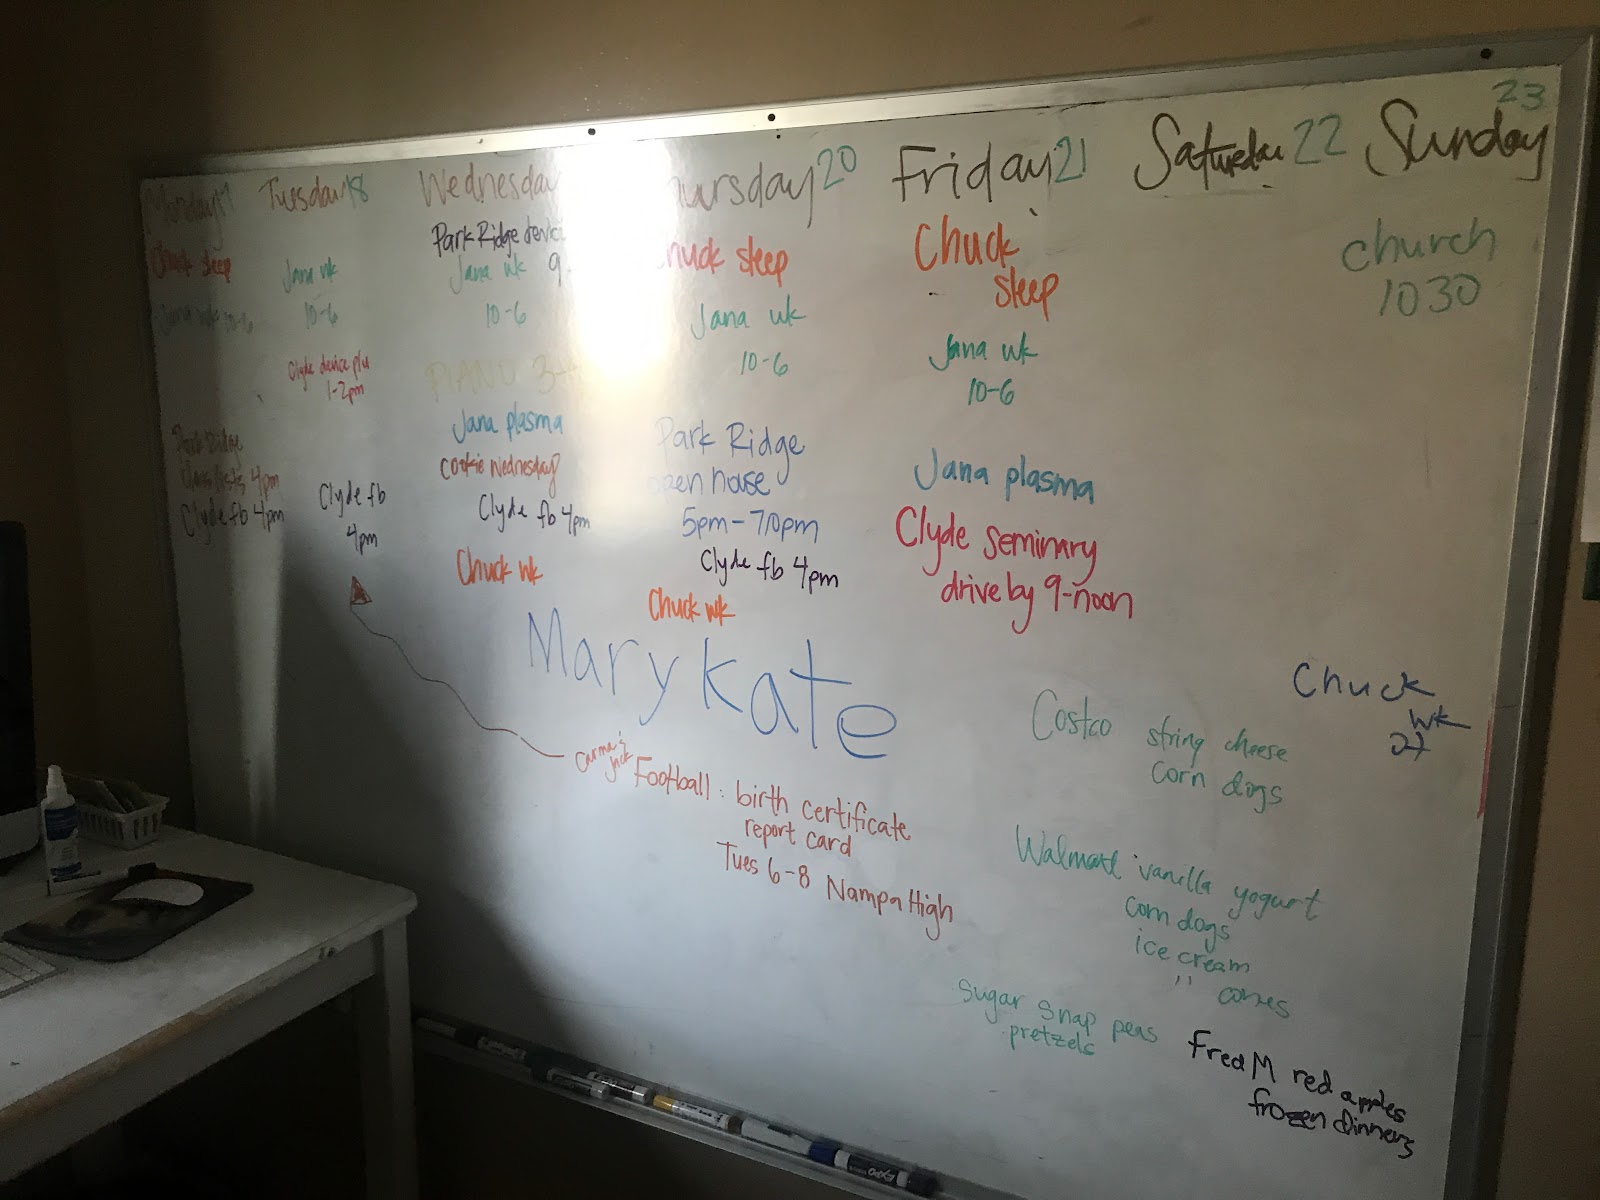 Monday 17
Chuck sleep
Jana wk 10-6
Park Ridge
class lists 4pm
Clyde fb 4pm
Tuesday 18
Jana wk
10-6
Clyde device plu
1-2pm
Clyde fb
4pm
Wednesday
Park Ridge devic
Jana wk 9
10-6
PIANO 3-4
Jana plasma
Cookie Wednesday
Clyde fb 4pm
Chuck wk
hursday 20
huck sleep
Jana wk
10-6
Park Ridge
open house
5pm-7:10pm
Clyde fb 4pm
Chuck wk
Friday 21
Chuck
sleep
Jana wk
10-6
Jana plasma
Clyde seminary
drive by 9-noon
Saturday 22
Sunday 23
church
1030
Mary Kate
Football: birth certificate
report card
Tues 6-8 Nampa High
Chuck
wk
Costco string cheese
corn dogs
Walmart vanilla yogurt
corn dogs
ice cream
" cones
Sugar snap peas
pretzels
Fred M red apples
frozen dinners
EXPO